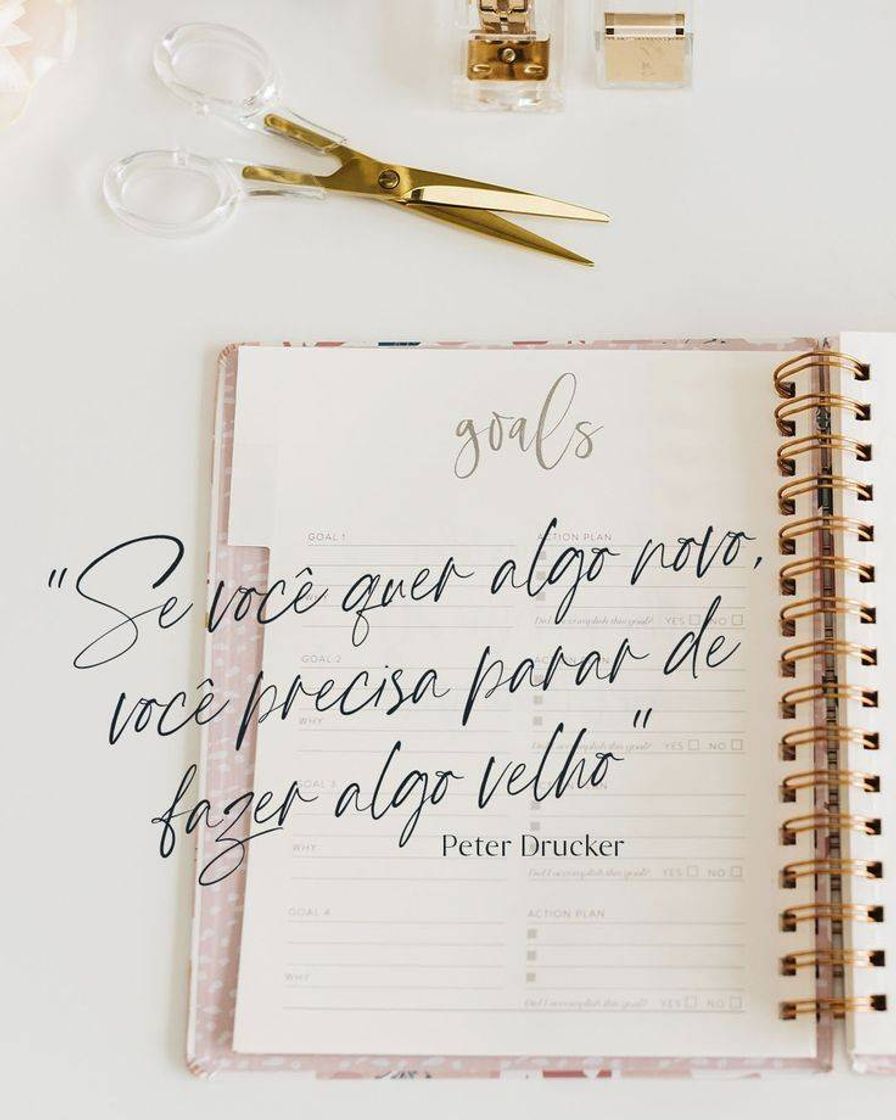 goals
GOAL 1
ACTION PLAN
"Se você quer algo novo,
Did I accomplish this goal? YES NO
você precisa parar de
GOAL 2
WHY
Did I accomplish this goal? YES NO
fazer algo velho"
GOAL 3
Peter Drucker
WHY
Did I accomplish this goal? YES NO
GOAL 4
ACTION PLAN
WHY
Did I accomplish this goal? YES NO